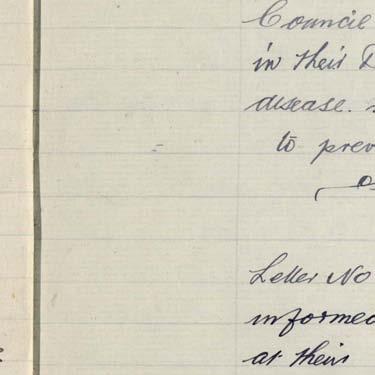 Council
in their D
disease.
to prev
Letter No
informed
at their